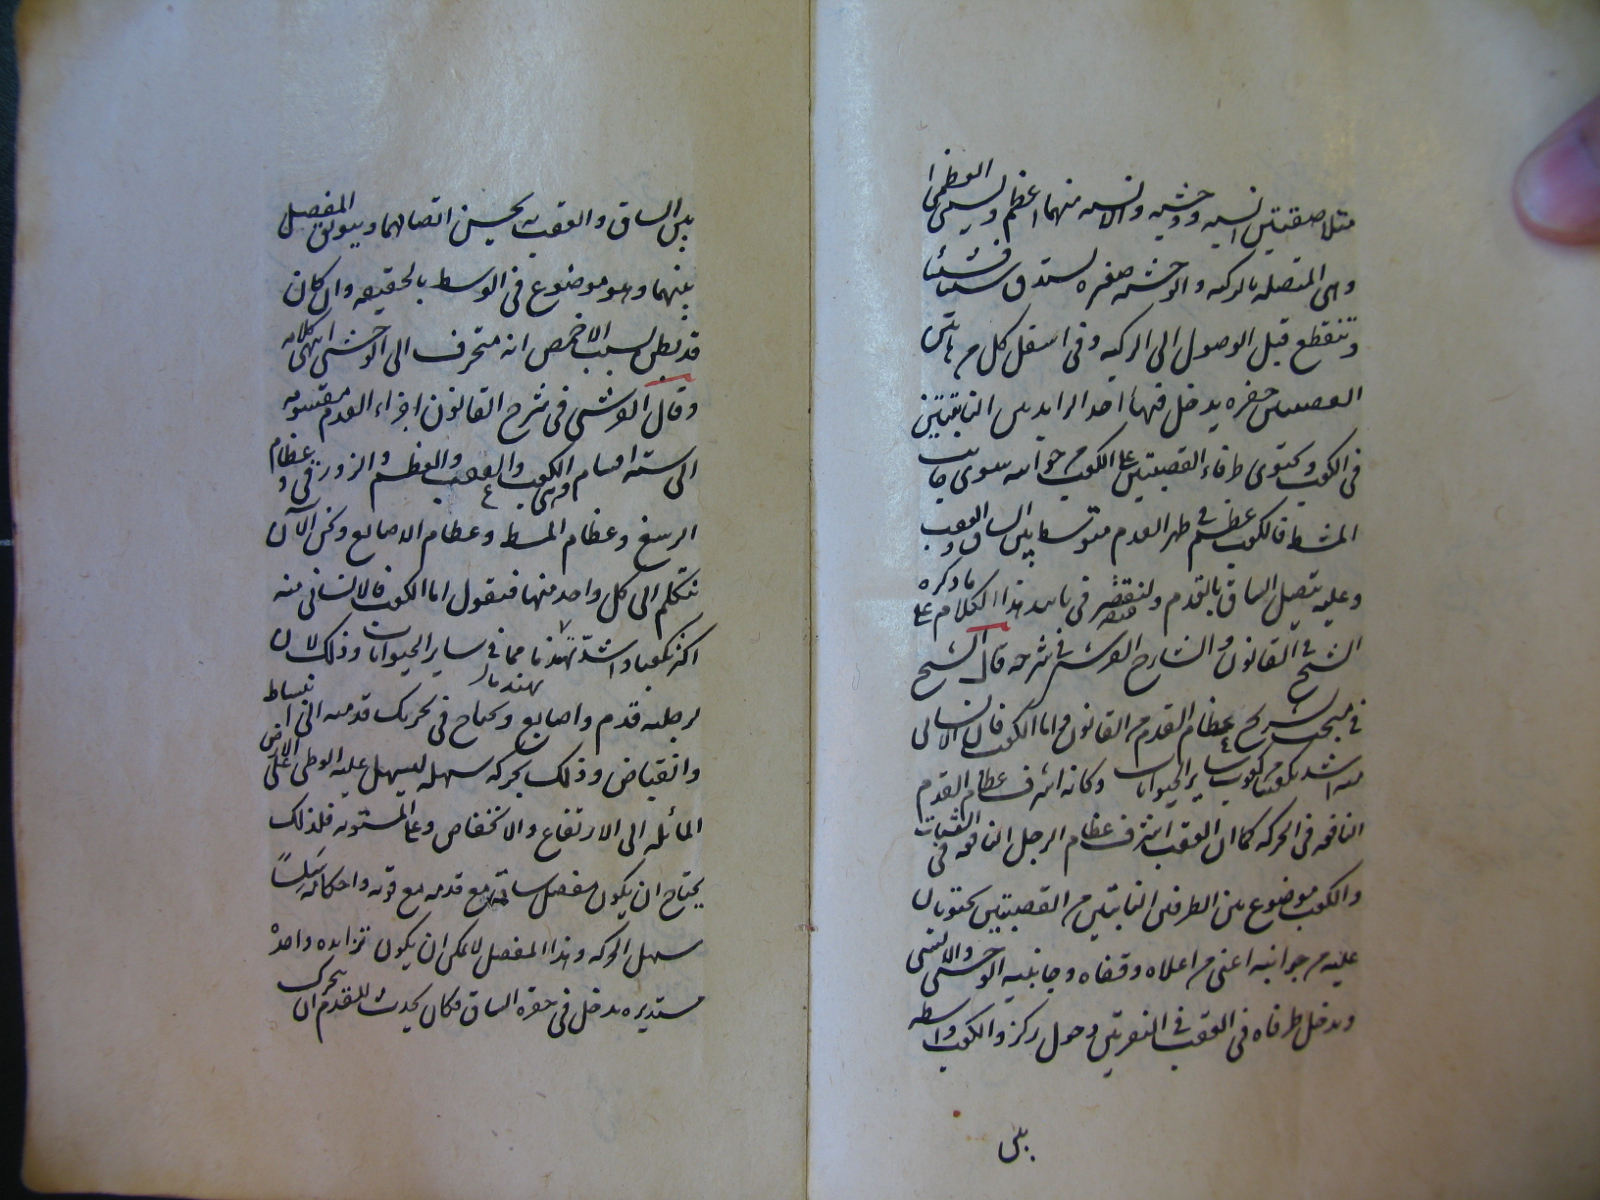 متلاصقتين انسيه ووحشيه والانسيه منهما اعظم ويسمى العظمى
وهى المتصله بالركبه والوحشيه صغره يستدق شيئا فشيئا
وتنقطع قبل الوصول الى الركبه وفى اسفل كل من هاتين
القصبتين حفره يدخل فيها احد الزايدتين النابتتين
فى الكعب ويحتوى طرفاء القصبتين على الكعب من جوانبه سوى جانب
المشط فالكعب عظم فى ظهر القدم متوسط بين الساق والعقب
وعليه يتصل الساق بالقدم ولنقتصر فى تاييد هذا الكلام على ما ذكره
الشيخ فى القانون والشارح القرشى فى شرحه قال الشيخ
فى مبحث تشريح عظام القدم من القانون واما الكعب فان الانسانى
منه اشد تكعبا من كعوب ساير الحيوانات وكانه اشرف عظام القدم
النافعه فى الحركه كما ان العقب اشرف عظام الرجل النافعه فى الثبات
والكعب موضوع بين الطرفين النابتين من القصبتين يحتويان
عليه من جوانبه اعنى من اعلاه وقفاه وجانبيه الوحشى والانسى
ويدخل طرفاه فى العقب فى النقرتين دخول ركز والكعب واسطه
بين
بين الساق والعقب به يحسن اتصالهما ويتوثق المفصل
بينهما وهو موضوع فى الوسط بالحقيقه وان كان
قد يظن بسبب الاخمص انه متحرف الى الوحشى انتهى كلامه
وقال القرشى فى شرح القانون اجزاء القدم مقسومه
الى سته اقسام وهى الكعب والعقب والعظم الزورقى وعظام
الرسغ وعظام المشط وعظام الاصابع ونحن الآن
نتكلم الى كل واحد منها فنقول اما الكعب فالانسانى منه
اكثر تكعبا واشد تهندما مما فى ساير الحيوانات وذلك لان
لرجليه قدم واصابع ويحتاج فى تحريك قدميه الى انبساط
وانقباض وذلك بحركه سهله ليسهل عليه الوطى على الارض
المائله الى الارتفاع والانخفاض وعلى المستويه فلذلك
يحتاج ان يكون مفصل ساقه مع قدمه مع قوته واحكامه سلسًا
سهل الحركه وهذا المفصل لا يمكن ان يكون بزايده واحده
مستديره يدخل فى حفره الساق فكان يحدث للقدم ان يتحرك